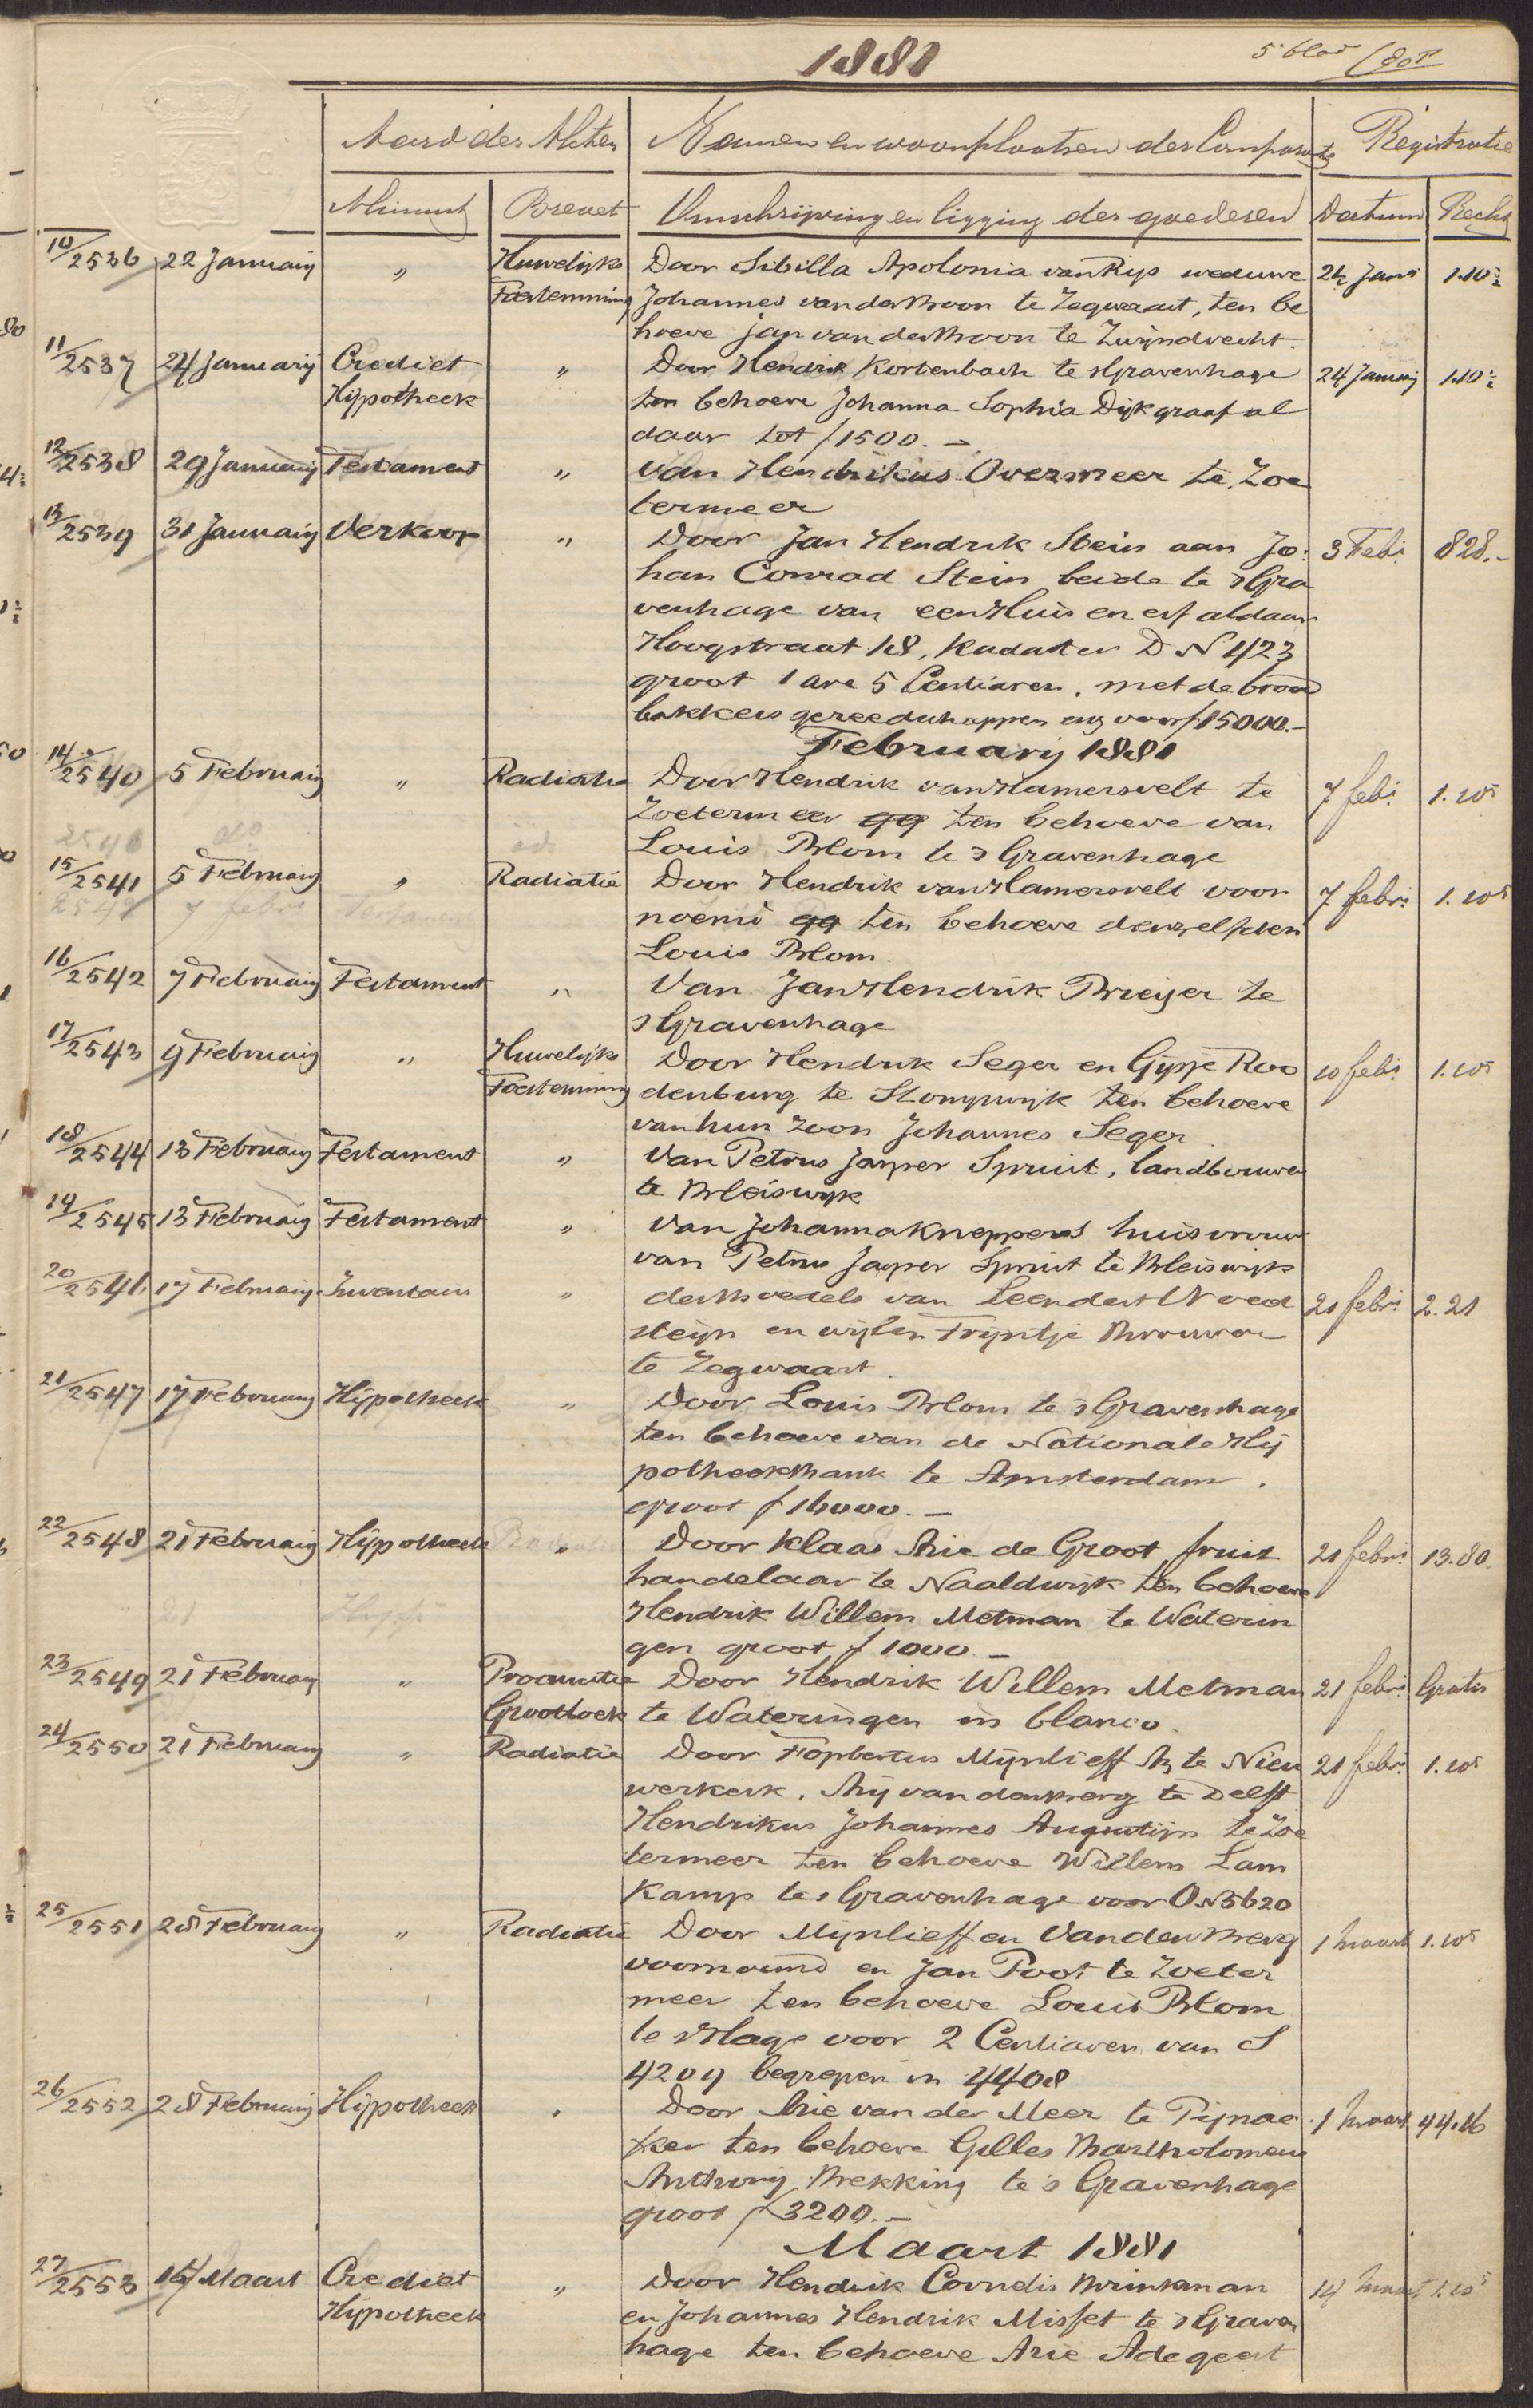 1881
5e blad
Aard der Akten Namen en woonplaatsen der Comparanten Registratie
Minuut Brevet Omschrijving en ligging der goederen Datum Recht
10/2536 22 Januarij " Huwelijks Door Sibilla Apolonia van Rijs weduwe 24 Janr 1.10½
Toestemming Johannes van der Boon te Zegwaart, ten be
hoeve Jan van der Boon te Zwijndrecht.
11/2537 24 Januarij Crediet " Door Hendrik Kortenbach te sGravenhage 24 Januarij 1.10½
Hijpotheek ten behoeve Johanna Sophia Dijkgraaf al
daar tot ƒ1500.-
12/2538 29 Januarij Testament " Van Hendrikus Overmeer te Zoe
termeer
13/2539 31 Januarij Verkoop " Door Jan Hendrik Stein aan Jo: 3 Febr 828.-
han Conrad Stein beide te sGra
venhage van een Huis en erf aldaar
Hoogstraat 18, Kadaster D N 423
groot 1 are 5 Centiaren, met de brood
bakkers gereedschappen enz voor ƒ15000.-
Februarij 1881
14/2540 5 Februarij " Radiatie Door Hendrik van Hamersvelt te 7 febr 1.10⁵
Zoetermeer qq ten behoeve van
Louis Blom te sGravenhage
15/2541 5 Februarij " Radiatie Door Hendrik van Hamersvelt voor 7 febr: 1.10⁵
noemd qq ten behoeve denzelfden
Louis Blom
16/2542 7 Februarij Testament " Van Jan Hendrik Breijer te
sGravenhage
17/2543 9 Februarij " Huwelijks Door Hendrik Seger en Gijpje Roo 10 febr 1.10⁵
Toestemming denburg te Stompwijk ten behoeve
van hun zoon Johannes Seger
18/2544 13 Februarij Testament " Van Petrus Jasper Spruit, landbouwer
te Bleiswijk
19/2545 13 Februarij Testament " Van Johanna Kneppers huisvrouw
van Petrus Jasper Spruit te Bleiswijk
20/2546 17 Februarij Inventaris " des boedels van Leendert Noord 21 febr: 2.21
steijn en wijlen Trijntje Brouwer
te Zegwaart
21/2547 17 Februarij Hijpotheek " Door Louis Blom te sGravenhage
ten behoeve van de Nationale Hij
potheekbank te Amsterdam.
groot ƒ16000.-
22/2548 21 Februarij Hijpotheek " Door Klaas Arie de Groot fruit 21 febr: 13.80
handelaar te Naaldwijk ten behoeve
Hendrik Willem Metman te Waterin
gen groot ƒ1000.-
23/2549 21 Februarij " Procuratie Door Hendrik Willem Metman 21 febr: Gratis
Grootboek te Wateringen in blanco
24/2550 21 Februarij " Radiatie Door Fopbertus Mijnlieff Az te Nieu 21 febr: 1.10⁵
werkerk, Arij van den Berg te Delft
Hendrikus Johannes Augustijn te Zoe
termeer ten behoeve Willem Lam
Kamp te sGravenhage voor O N 3620
25/2551 28 Februarij " Radiatie Door Mijnlieff en Van den Berg 1 Maart 1.10⁵
voornoemd en Jan Poot te Zoeter
meer ten behoeve Louis Blom
te sHage voor 2 Centiaren van S
4209 begrepen in 4408
26/2552 28 Februarij Hijpotheek " Door Arie van der Meer te Pijnac 1 Maart 44.16
ker ten behoeve Gilles Bartholomeus
Anthonij Brekking te 's Gravenhage
groot ƒ3200.-
Maart 1881
27/2553 Maart Crediet " Door Hendrik Cornelis Brinkman 14 Maart 1.10⁵
Hijpotheek en Johannes Hendrik Misset te sGraven
hage ten behoeve Arie Adegeest